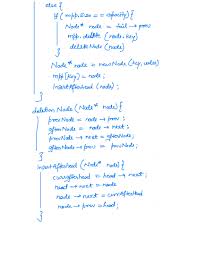 else {
if (mpp.size == capacity) {
Node* node = tail → prev
mpp.delete (node.key)
deleteNode (node)
}
Node* node = newNode (key, value)
mpp[key] = node;
insertAfterhead (node);
}
}
deletionNode (Node* node) {
prevNode = node → prev;
afterNode = node → next;
prevNode → next = afterNode;
afterNode → prev = prevNode;
}
insertAfterhead (Node* node) {
currAfterhead = head → next;
head → next = node
node → next = currAfterhead
node → prev = head;
}